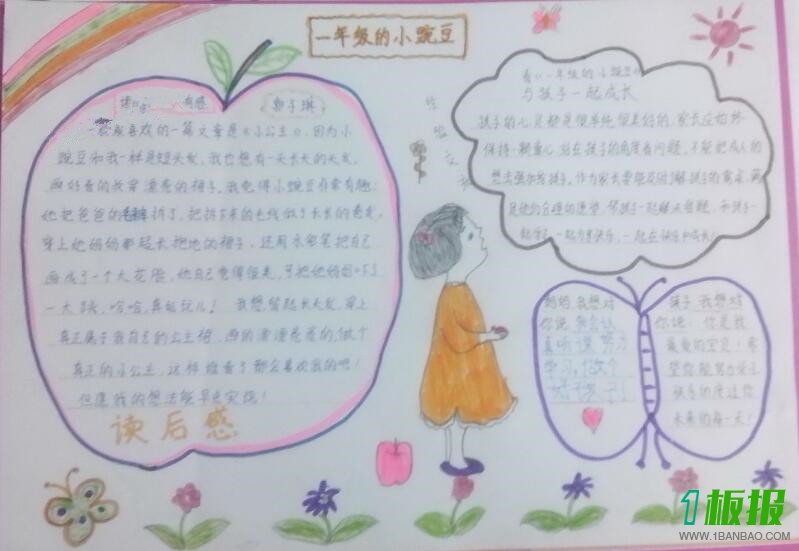 一年级的小豌豆
有感
郭子琪
最喜欢的一篇文章是《小公主》,因为小
豌豆和我一样是短头发,我也想有一头长长的头发,
穿漂亮的裙子。我觉得小豌豆非常有趣,
她把爸爸的毛裤拆了,把拆下来的毛线做了长长的卷发,
穿上她妈妈那超长拖地的裙子,还用水彩笔把自己
画成了一个大花脸,她自己觉得很美,可把她妈妈吓了
一大跳,哈哈,真好玩儿!我想留起长头发,穿上
真正属于我自己的公主裙,画的漂漂亮亮的,做个
真正的小公主,这样谁看了都会喜欢我的吧!
但愿我的想法能早点实现!
读后感
看《一年级的小豌豆》
与孩子一起成长
孩子的心灵都是很单纯很美好的,家长应始终
保持一颗童心,站在孩子的角度看问题,不能把成人的
想法强加给孩子。作为家长要能及时了解孩子的需求,满
足他们合理的愿望,帮孩子一起解决难题,和孩子一
起学习,一起分享快乐,一起在快乐中成长。
妈妈,我想对
你说:我会认
真听课,努力
学习,做个
好孩子!
孩子,我想对
你说:你是我
最爱的宝贝!希
望你能努力学习
快乐的度过你
未来的每一天!
1板报
WWW.1BANBAO.COM